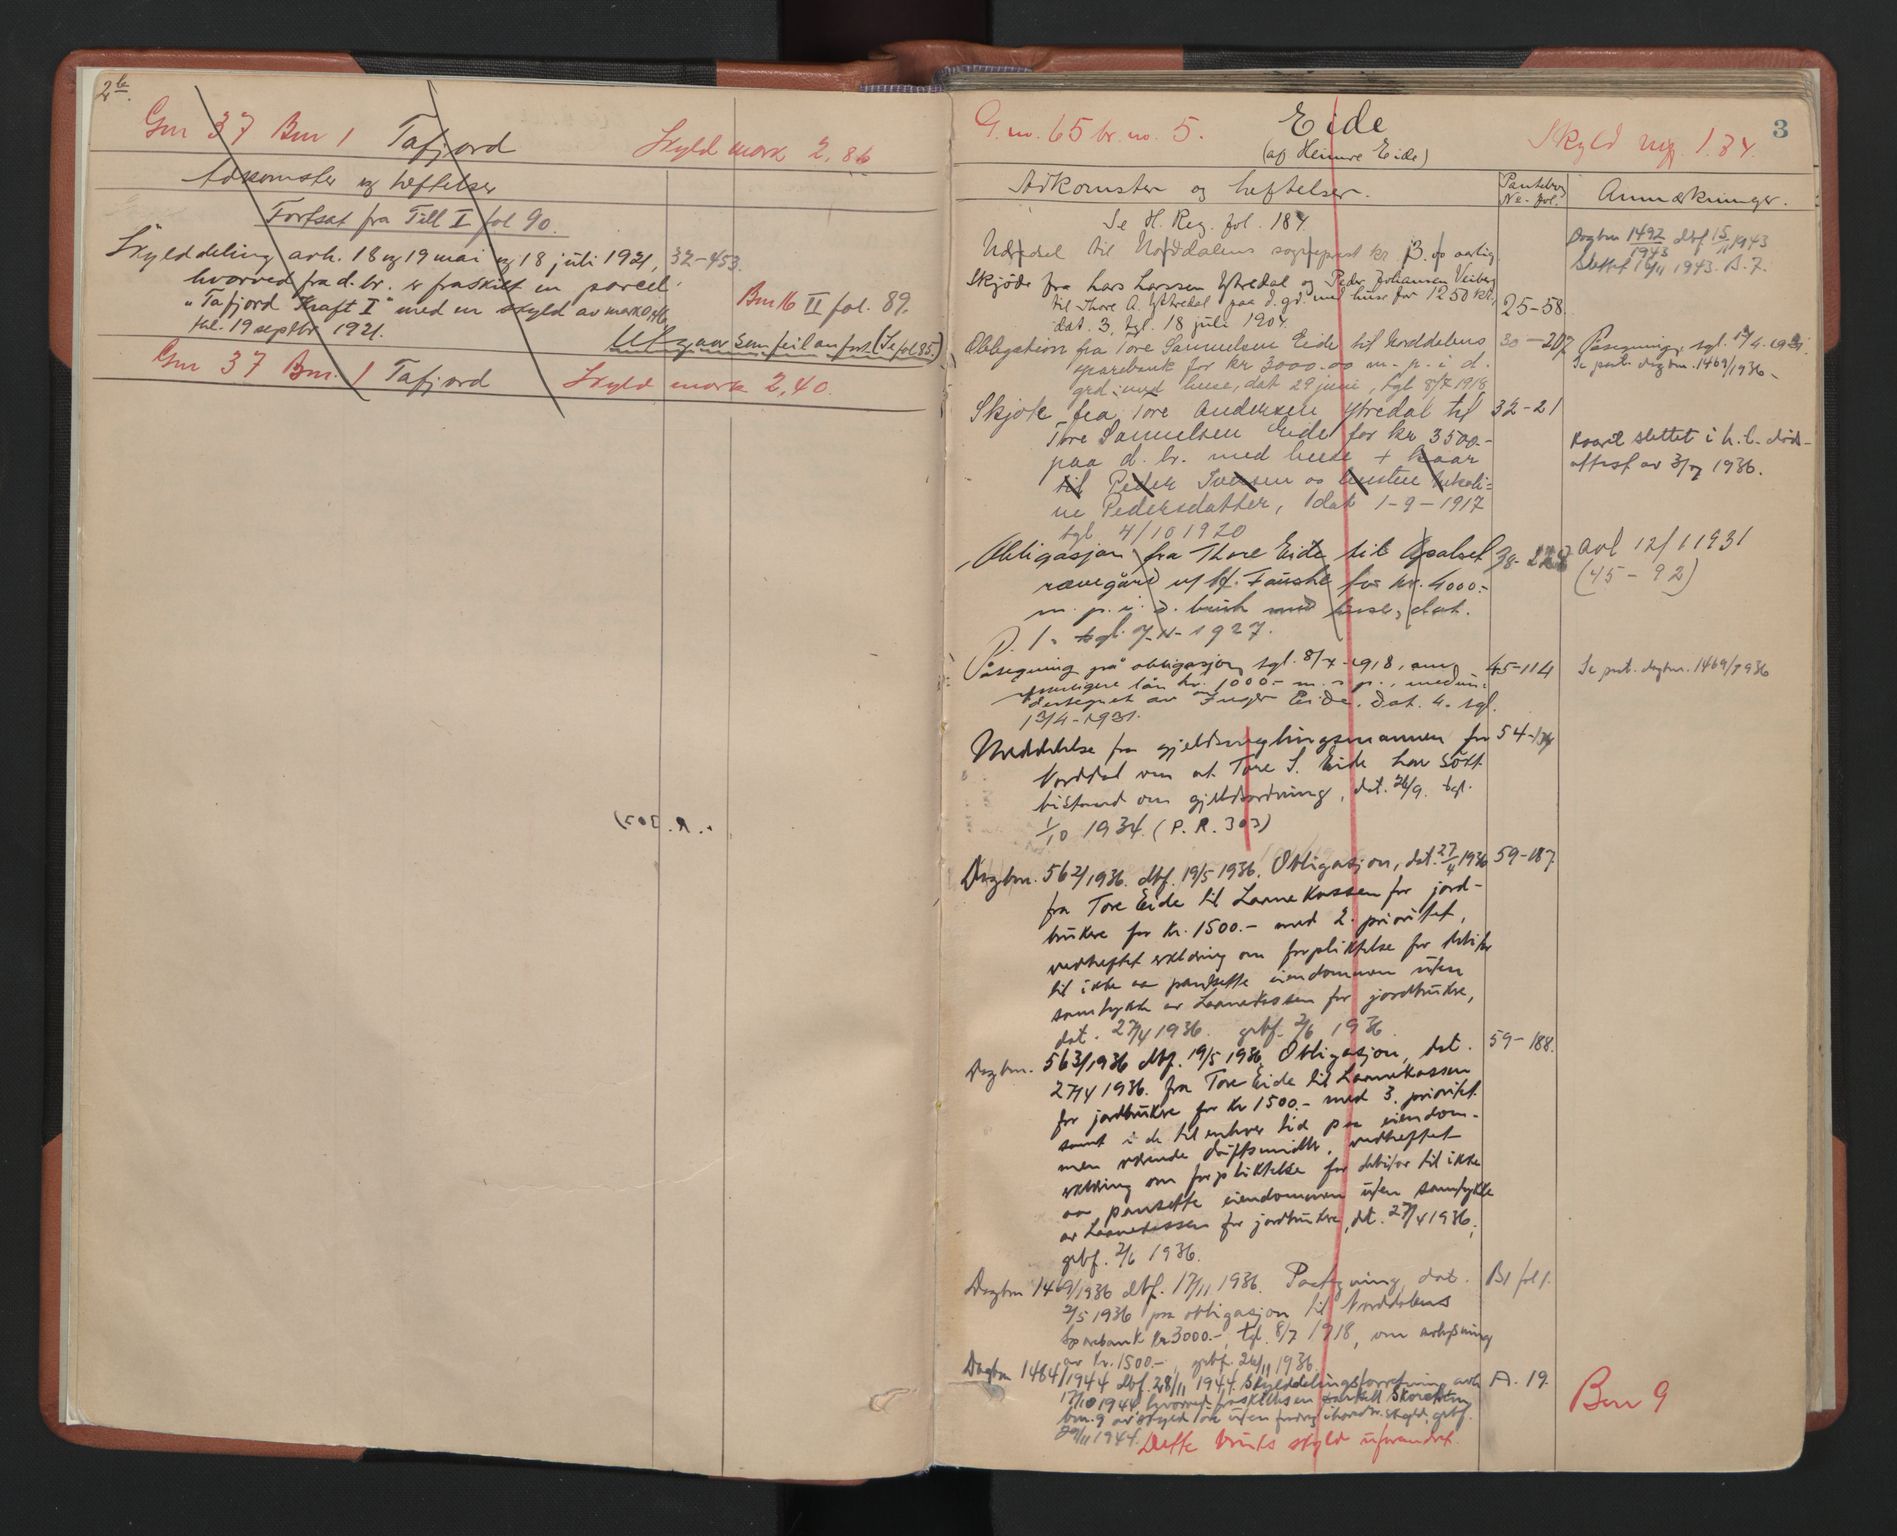 2b.
Gnr 37 Bnr 1 Tafjord Skyld mark 2,86
Adkomster og heftelser
Fortsat fra Till I fol 90.
Skylddeling avh. 18 og 19 mai og 18 juli 1921, 32-453.
hvorved fra d. br. er fraskilt en parcel
"Tafjord Kraft I" med en skyld av mark
tgl. 19 septbr. 1921. Bnr 16 II fol. 89.
Utgaar som feilanført (Se fol 85.)
Gnr 37 Bnr. 1 Tafjord Skyld mark 2,40.
3
G. no. 65 br. no. 5. Eide Skyld mrk. 1.84.
(af Heimre Eide)
Adkomster og heftelser. Pantebog No. fol. Anmærkninger.
Se H. Reg. fol. 187.
til Norddalens sogneprest kr. 3.00 aarlig. Dagbnr 1492/1943 dbf 15/11 1943
Slettet 16/11 1943. B. 7.
Skjøde fra Lars Larssen Ytredal og Peder Johansen Viiberg
til Thore A. Ytredal paa d. gd. med huse for 1250 kr., 25-58.
dat. 3, tgl. 18 juli 1904.
Obligation fra Tore Samuelsen Eide til Norddalens 30-207 Paategning, tgl. 1931.
sparebank for kr 3000.00 m. p. i d. Se paat. dagbnr. 1469/1936.
grd. med huse, dat 29 juni, tgl 8/7 1918
Skjøte fra Tore Andersen Ytredal til 32-21
Tore Samuelsen Eide for kr 3500.-
paa d. br. med huse + kaar Kaaret slettet i h. t. døds-
til Peder Iversen og hustru attest av 3/7 1936.
ne Pedersdatter, dat 1-9-1917
tgl 4/10 1920
Obligasjon fra Thore Eide til Opalset 38-228 Avl 12/1 1931
revegård v/ M. Fauske for kr. 4000.- (45-92)
m. p. i. d. bruk med huse, dat.
1. tgl. 7-11-1927.
Påtegning på obligasjon tgl. 8/7-1918, om 45-114 Se paat. dagbnr. 1469/1936
ytterligere lån kr. 1000.- m. s. p., medun-
dertegnet av Inger Eide. Dat. 4. tgl.
13/4-1931.
Meddelelse fra gjeldsmeglingsmannen for 54-
Norddal om at Tore S. Eide har søkt
bistand om gjeldsordning, dat. 26/9. tgl.
1/10 1934. (P. R. 303)
Dagbnr. 562/1936. dbf. 19/5 1936. Obligasjon, dat. 27/4 1936 59-187.
fra Tore Eide til Lånekassen for jord-
brukere for kr. 1500.- med 2. prioritet,
vedheftet erklæring om forpliktelse for debitor
til ikke aa pantsette eiendommen uten
samtykke av Laanekassen for jordbrukere,
dat. 27/4 1936. grbf. 2/6 1936.
Dagbnr. 563/1936 dbf. 19/5 1936. Obligasjon, dat. 59-188.
27/4 1936. fra Tore Eide til Laanekassen
for jordbrukere for kr 1500.- med 3. prioritet
samt i de til enhver tid paa eiendom-
men værende driftsmidler, vedheftet
erklæring om forpliktelse for debitor til ikke
aa pansette eiendommen uten samtykke
av Laanekassen for jordbrukere, dat. 27/4 1936,
grbf. 2/6 1936.
Dagbnr 1469/1936 dbf. 17/11 1936. Paategning, dat. B1 fol 1.
2/5 1936 paa obligasjon til Norddalens
Sparebank kr 3000.-, tgl. 8/7 1918, om avlysning
av kr. 1500.-, grbf. 26/11 1936.
Dagbnr 1484/1944 dbf. 28/11 1944. Skylddelingsforretning avh A. 19.
17/10 1944 hvorved fraskilles en
bnr. 9 av skyld øre uten skyld, grbf. Bnr 9
29/11 1944. Dette bruks skyld uforandret.